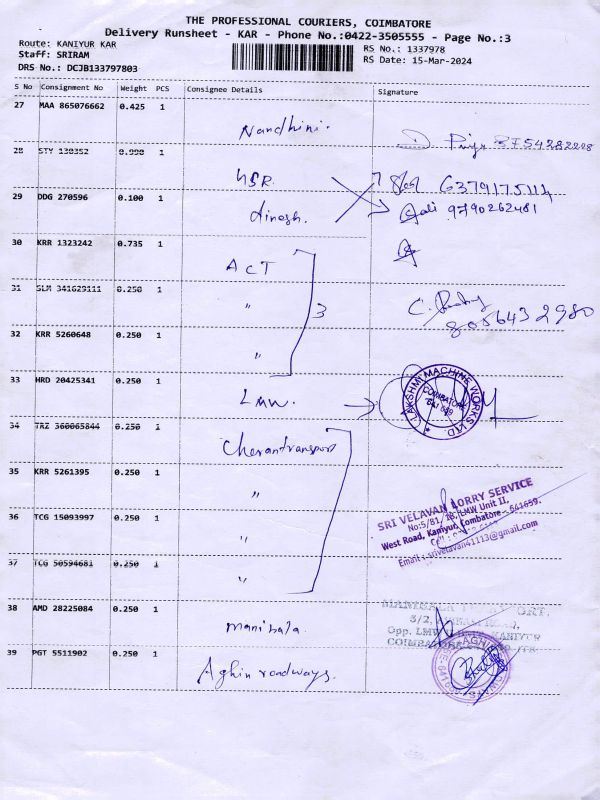 THE PROFESSIONAL COURIERS, COIMBATORE
Delivery Runsheet - KAR - Phone No.:0422-3505555 - Page No.:3
Route: KANIYUR KAR
RS No.: 1337978
Staff: SRIRAM
RS Date: 15-Mar-2024
DRS No.: DCJB133797803
S No Consignment No Weight PCS Consignee Details Signature
27 MAA 865076662 0.425 1
Nandhini.
28 STY 130352 0.990 1
29 DDG 270596 0.100 1
dinesh.
9790262481
30 KRR 1323242 0.735 1
ACT
31 SLM 341629111 0.250 1
" 3
8056432980
32 KRR 5260648 0.250 1
"
33 HRD 20425341 0.250 1
LMW.
LAKSHMI MACHINE WORKS LTD
COIMBATORE
34 TRZ 360065844 0.250 1
Cherantransport
35 KRR 5261395 0.250 1
"
SRI VELAVAN LORRY SERVICE
LMW Unit II,
West Road, Kaniyur, Coimbatore - 641659.
Email : srivelavan41113@gmail.com
36 TCG 15093997 0.250 1
"
37 TCG 50594681 0.250 1
"
38 AMD 28225084 0.250 1
manibala.
39 PGT 5511902 0.250 1
Aghin roadways.